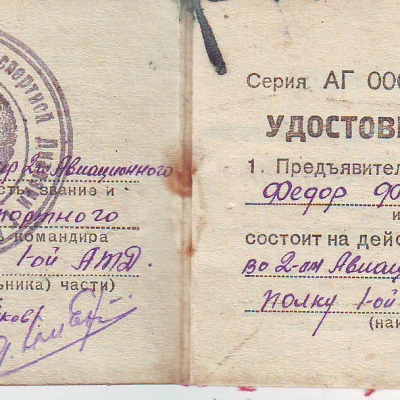 спортной Диви
ир 2го Авиационного
сть, звание и
портного
командира
1-ой АТД.
льника) части)
ков)
Серия АГ 000
УДОСТОВ
1. Предъявител
Федор Фо
и
состоит на дейс
во 2-ом Авиац
полку 1-ой
(наи